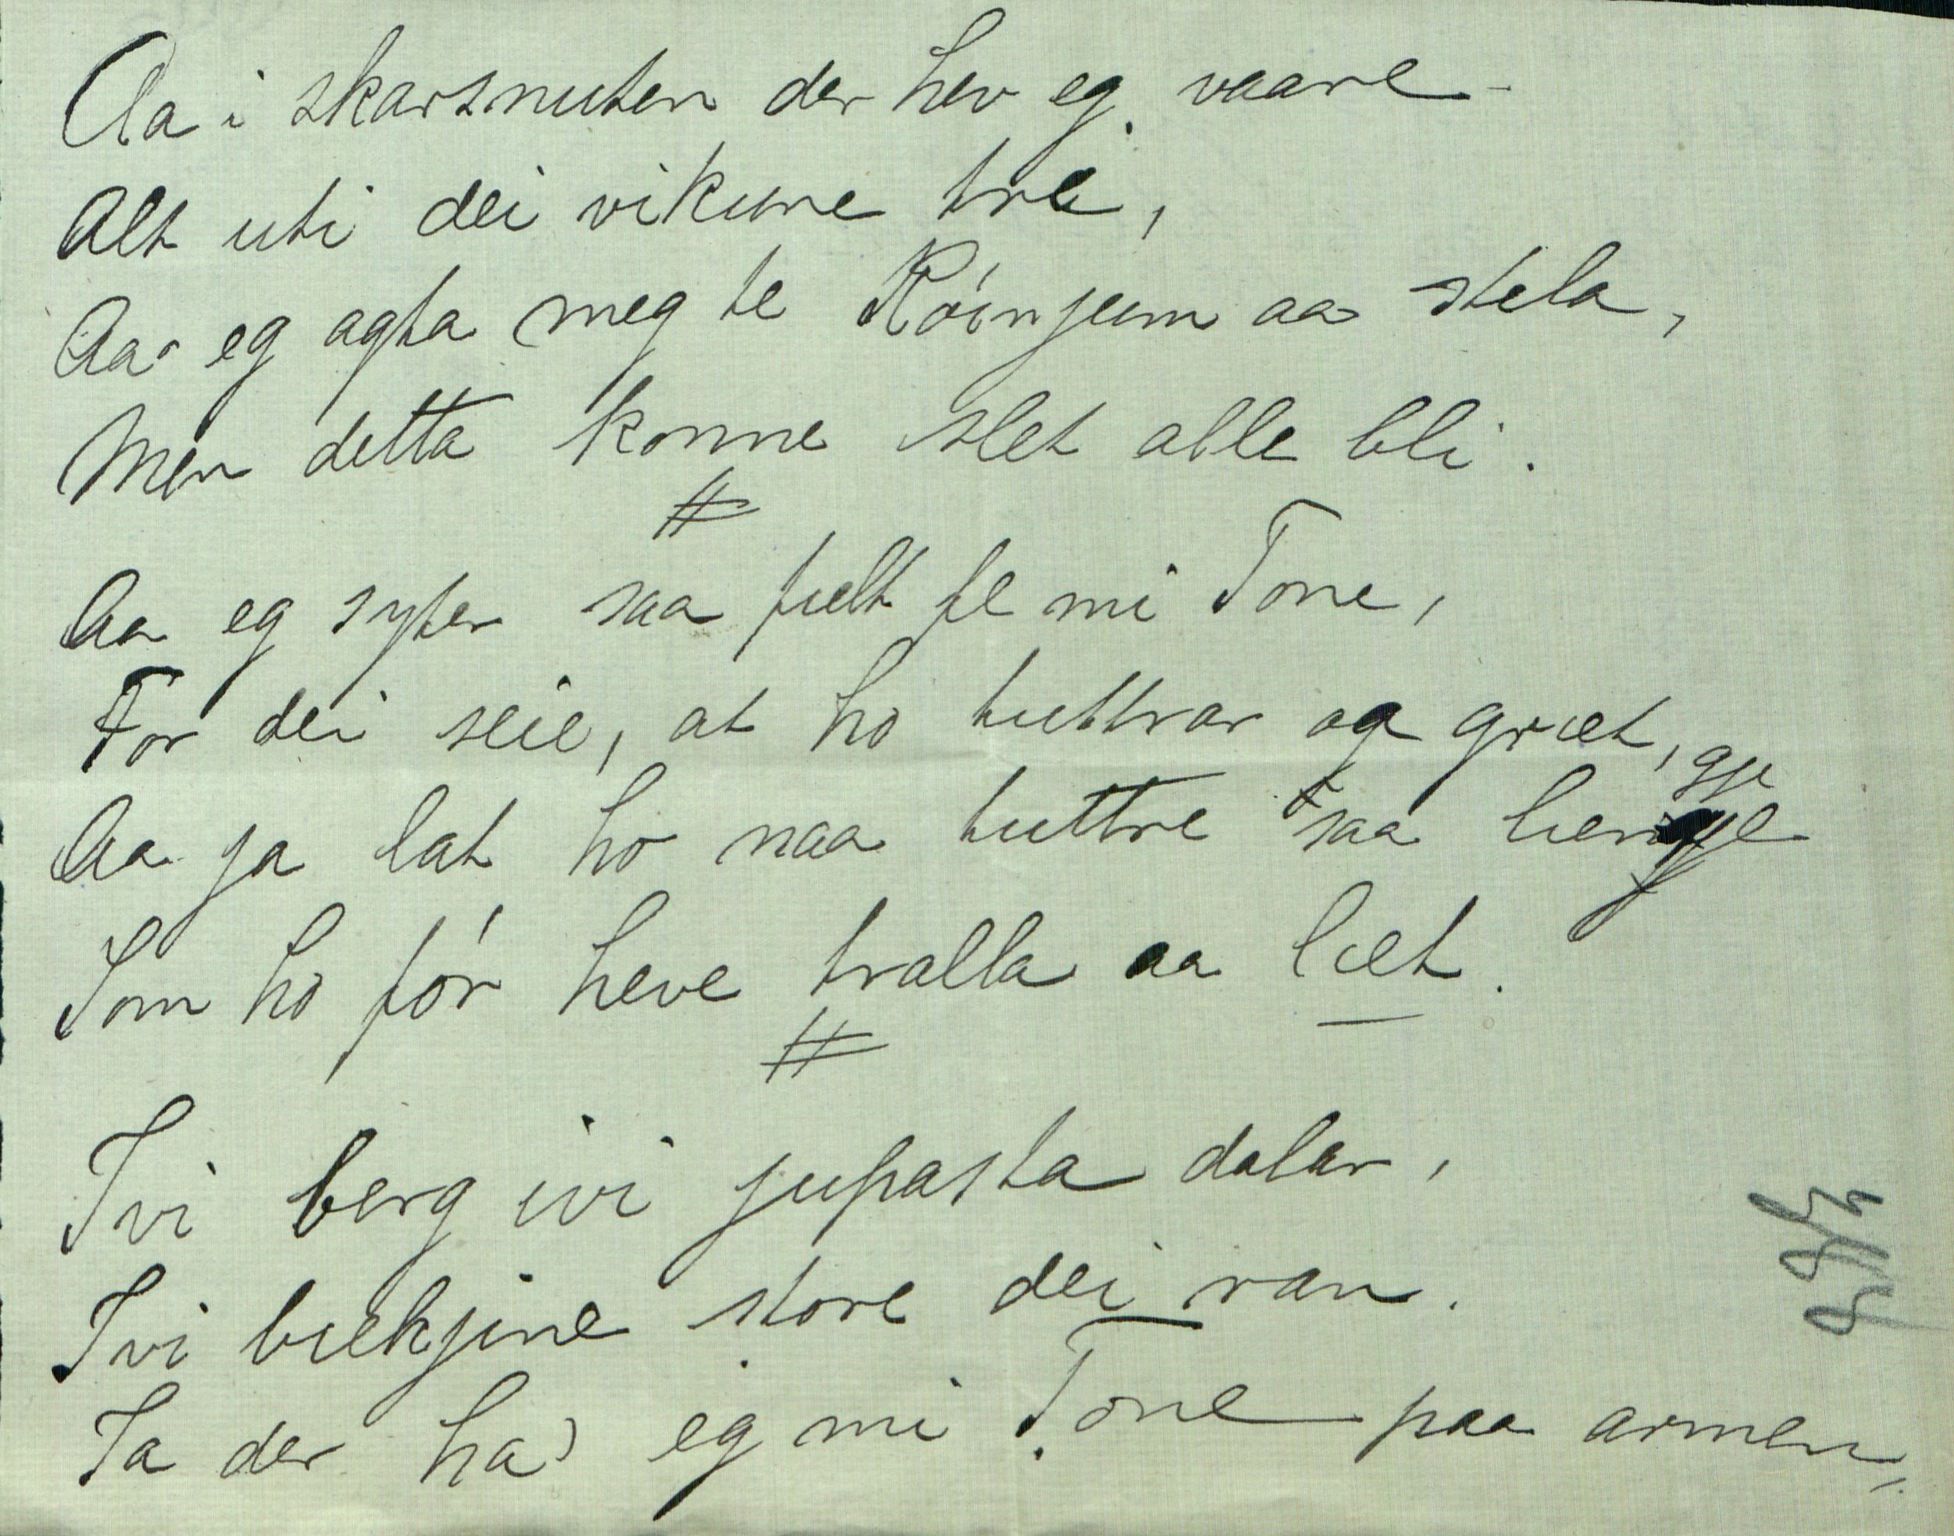 Aa i skarsnuten der hev eg vaare
Alt uti dei vikune tre,
Aa eg agta meg te Róinjum aa stela,
Men detta konne slet alle bli.
#
Aa eg syter saa fælt fe mi Tone,
For dei seie, at ho tuttrar og græt,
Aa ja lat ho naa tuttre saa længje
gje
Som ho fór heve tralla aa læt.
#
Ivi berg ivi jupasta dalar,
Ivi bækjine store dei ran.
Ja der ha) eg mi Tone paa armen,